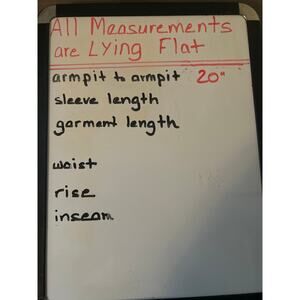 All Measurements
are Lying Flat
armpit to armpit 20"
sleeve length
garment length
waist
rise
inseam